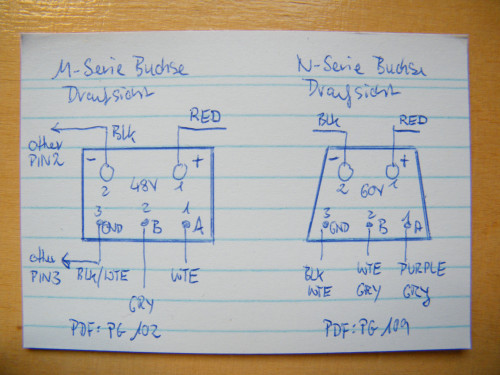 M-Serie Buchse
Draufsicht
Blk
RED
other
PIN2
-
+
2
48V
1
3
2
1
GND
B
A
other
PIN3
BLK/WTE
WTE
GRY
PDF: PG 102
N-Serie Buchse
Draufsicht
Blk
RED
-
+
2
60V
1
3
2
1
GND
B
A
BLK
WTE
WTE
GRY
PURPLE
GRY
PDF: PG 109